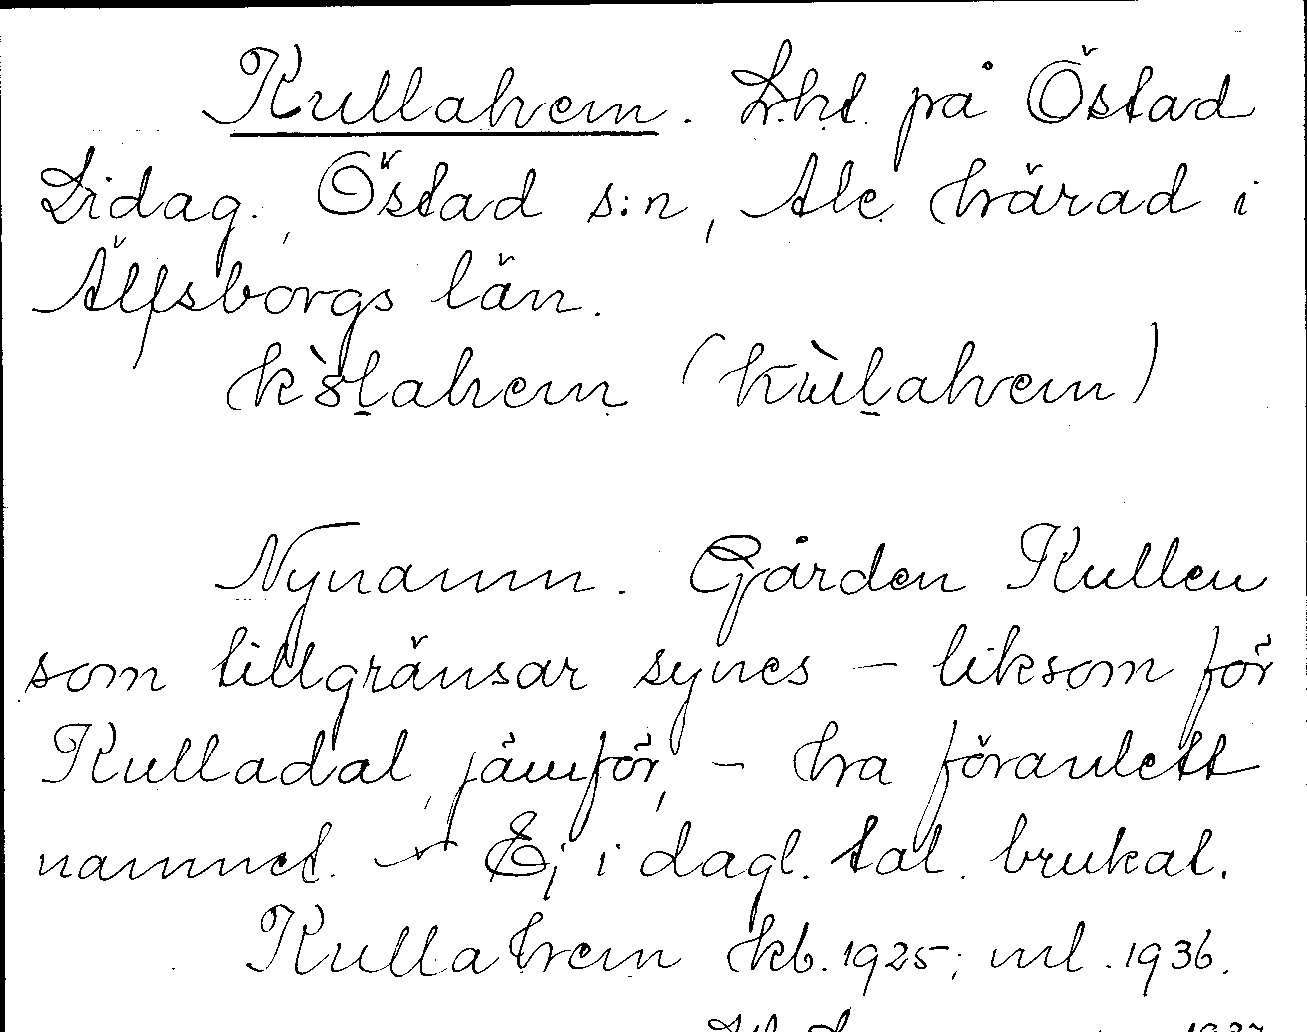 Kullahem. Lht. på Östad
Lidag., Östad s:n, Ale härad i
Älfsborgs län.
(kùl̠ahem)
Nynamn. Gården Kullen
som tillgränsar synes – liksom för
Kulladal, jämför, – ha föranlett
namnet. – Ej i dagl. tal. brukat.
Kullahem kb. 1925; ml. 1936.